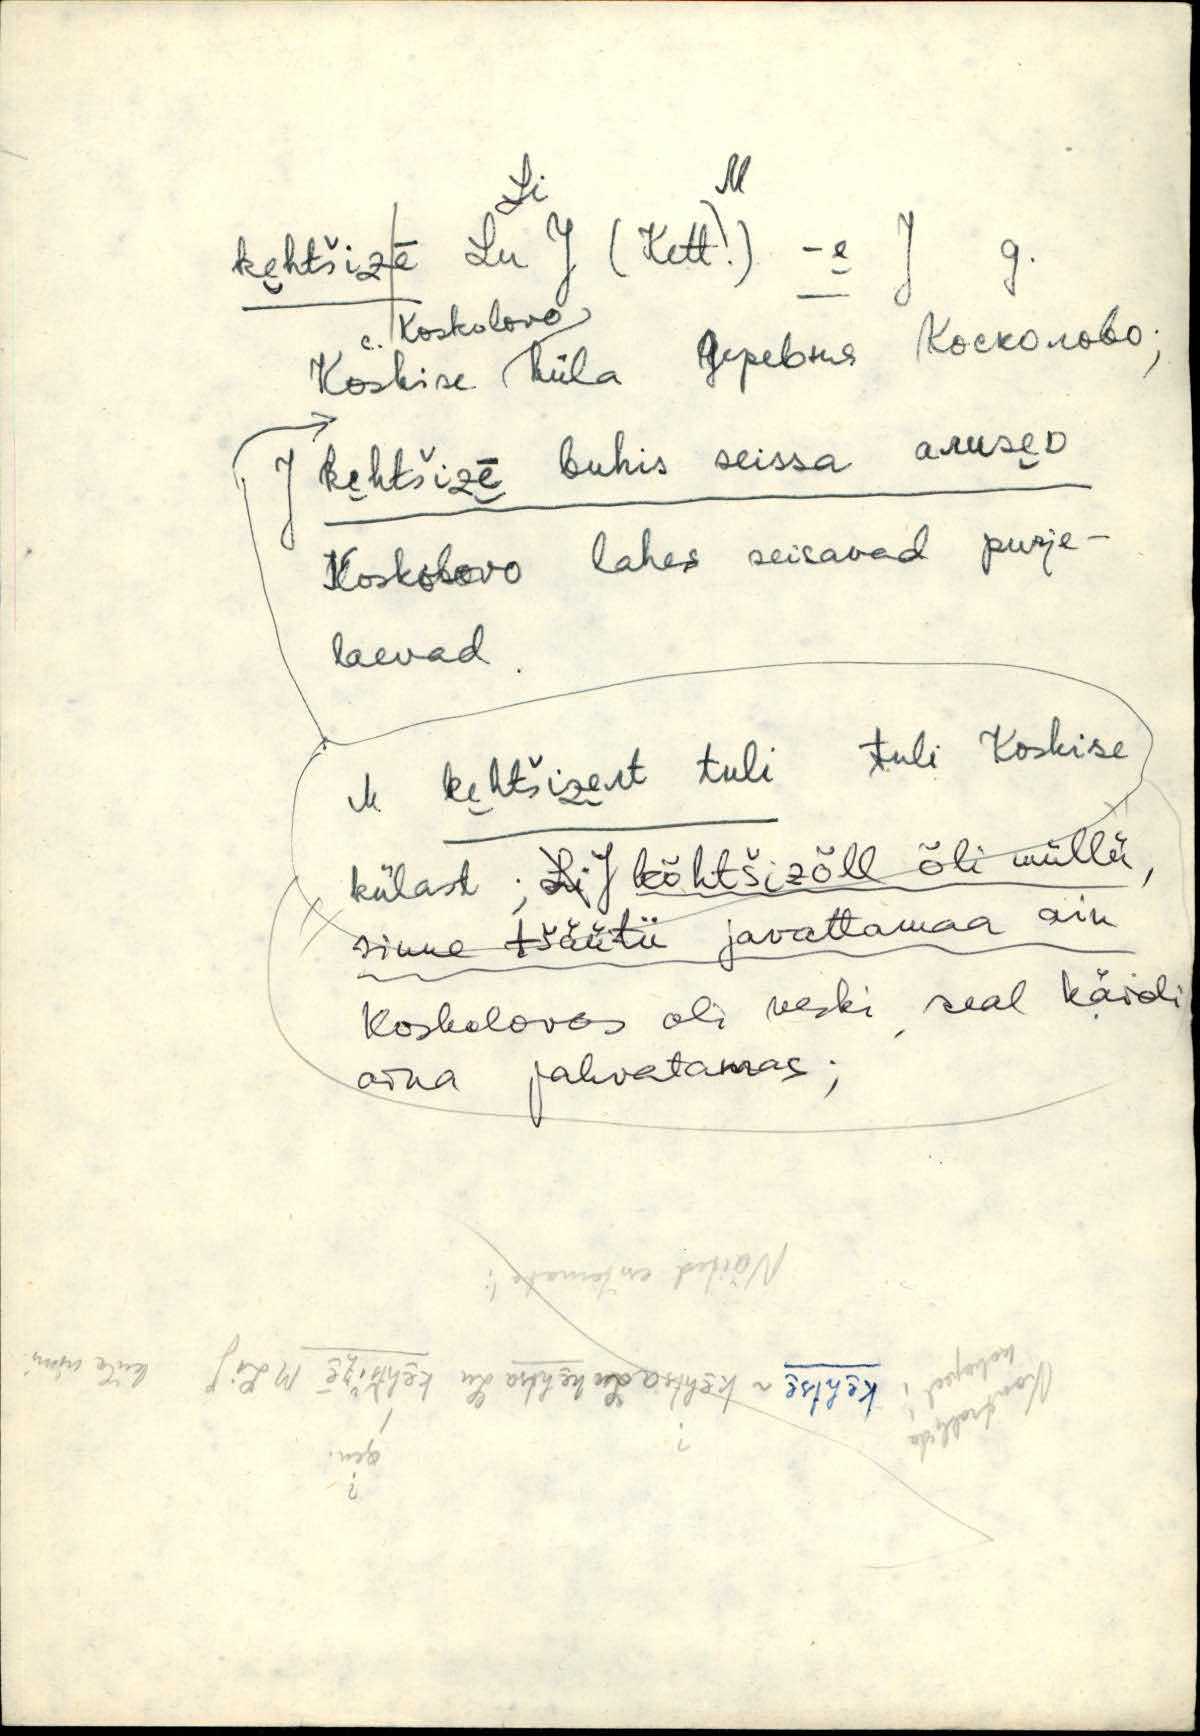 Li M
ke̮htšizē Lu J (Kett.) -e̮ J g.
с. Koskolovo
Koskise küla деревня Косколово;
J ke̮htšizē̮ luhis seissa алuзe̮D
Koskolovo lahes seisavad purje-
laevad.
M ke̮htšize̮ɫt tuli tuli Koskise
külast; Li J kõhtšizõll õli müllü,
sinne tšäütii javattamaa ain
Koskolovos oli veski, seal käidi
aina jahvatamas;
Näited ent. !
Kontrollida
ke̮htse ~ ke̮htsa Lu ke̮htsa Lu ke̮htšizē M Li J küla nimi
? gen.
?